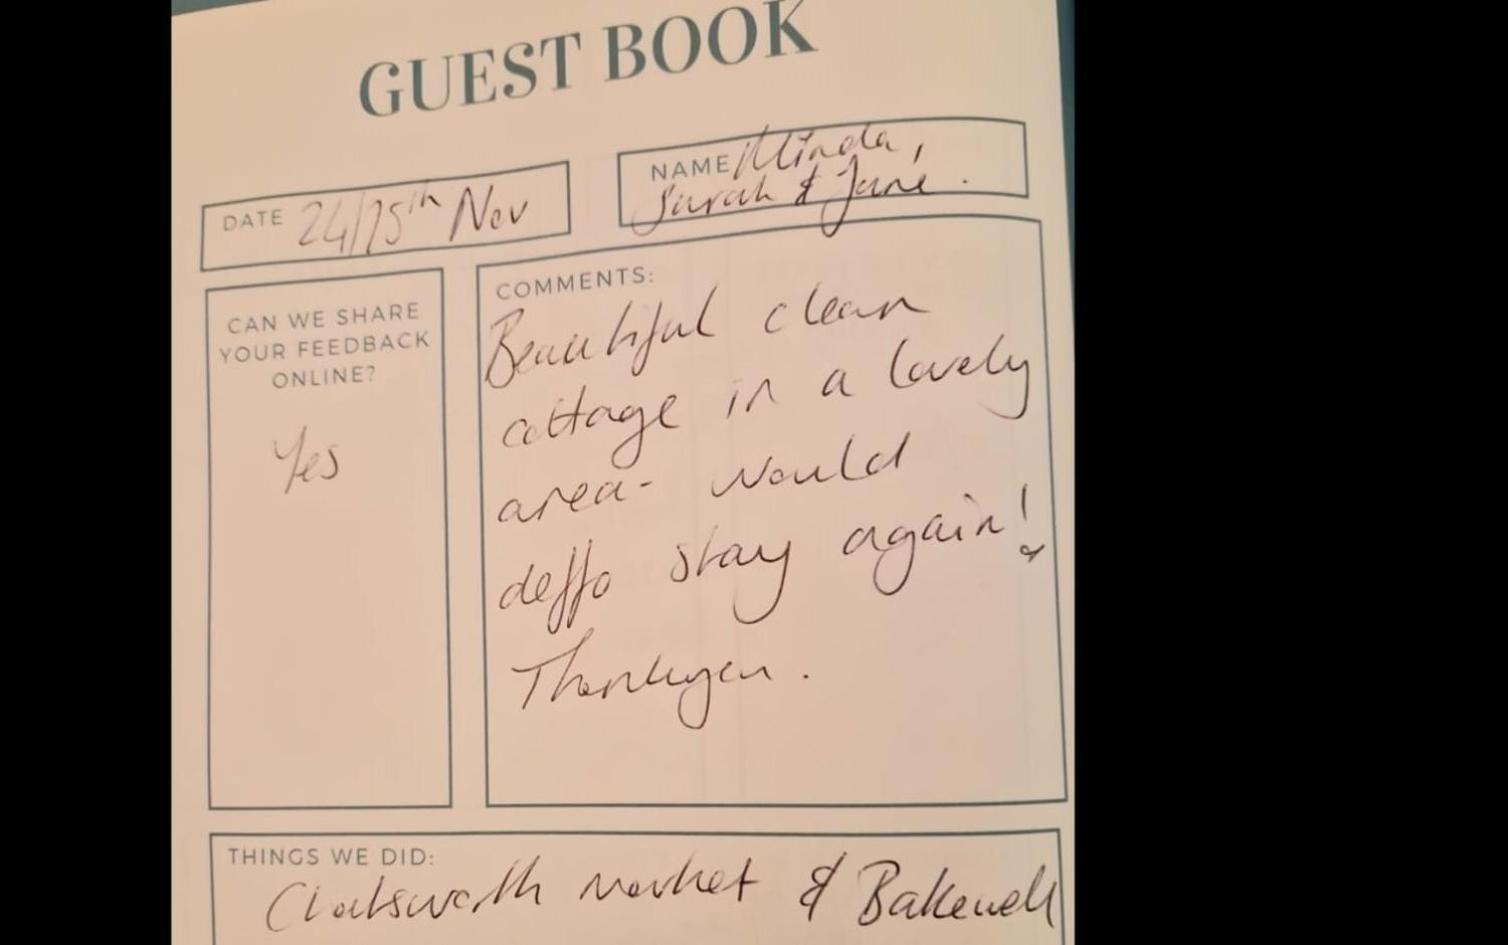 GUEST BOOK
DATE 24/25th Nov
NAME Minda,
Sarah & Jane.
CAN WE SHARE
YOUR FEEDBACK
ONLINE?
Yes
COMMENTS:
Beautiful clean
cottage in a lovely
area- would
deffo stay again!
Thankyou.
THINGS WE DID:
Chatsworth market & Bakewell